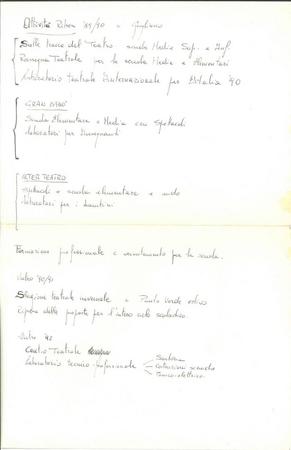 Attività Ribera '89/90 a Giugliano
Sulle tracce del Teatro scuola Media Sup. e Inf.
Rassegna Teatrale per la scuola Media e Elementari
Laboratorio teatrale Internazionale per Estalia '90
GRAN
Scuola Elementare e Media con Spettacoli
Laboratori per Insegnanti
ALTER TEATRO
Spettacoli a scuola elementare e nido
Laboratori per i bambini
Formazione professionale e orientamento per la scuola.
Entro '90/91
Stagione teatrale invernale e Punto Verde estivo
Ripresa delle proposte per l'intero ciclo scolastico.
Entro '92
Centro Teatrale
Laboratorio tecnico-professionale
Sartoria
Costruzioni sceniche
Fonico-elettrico